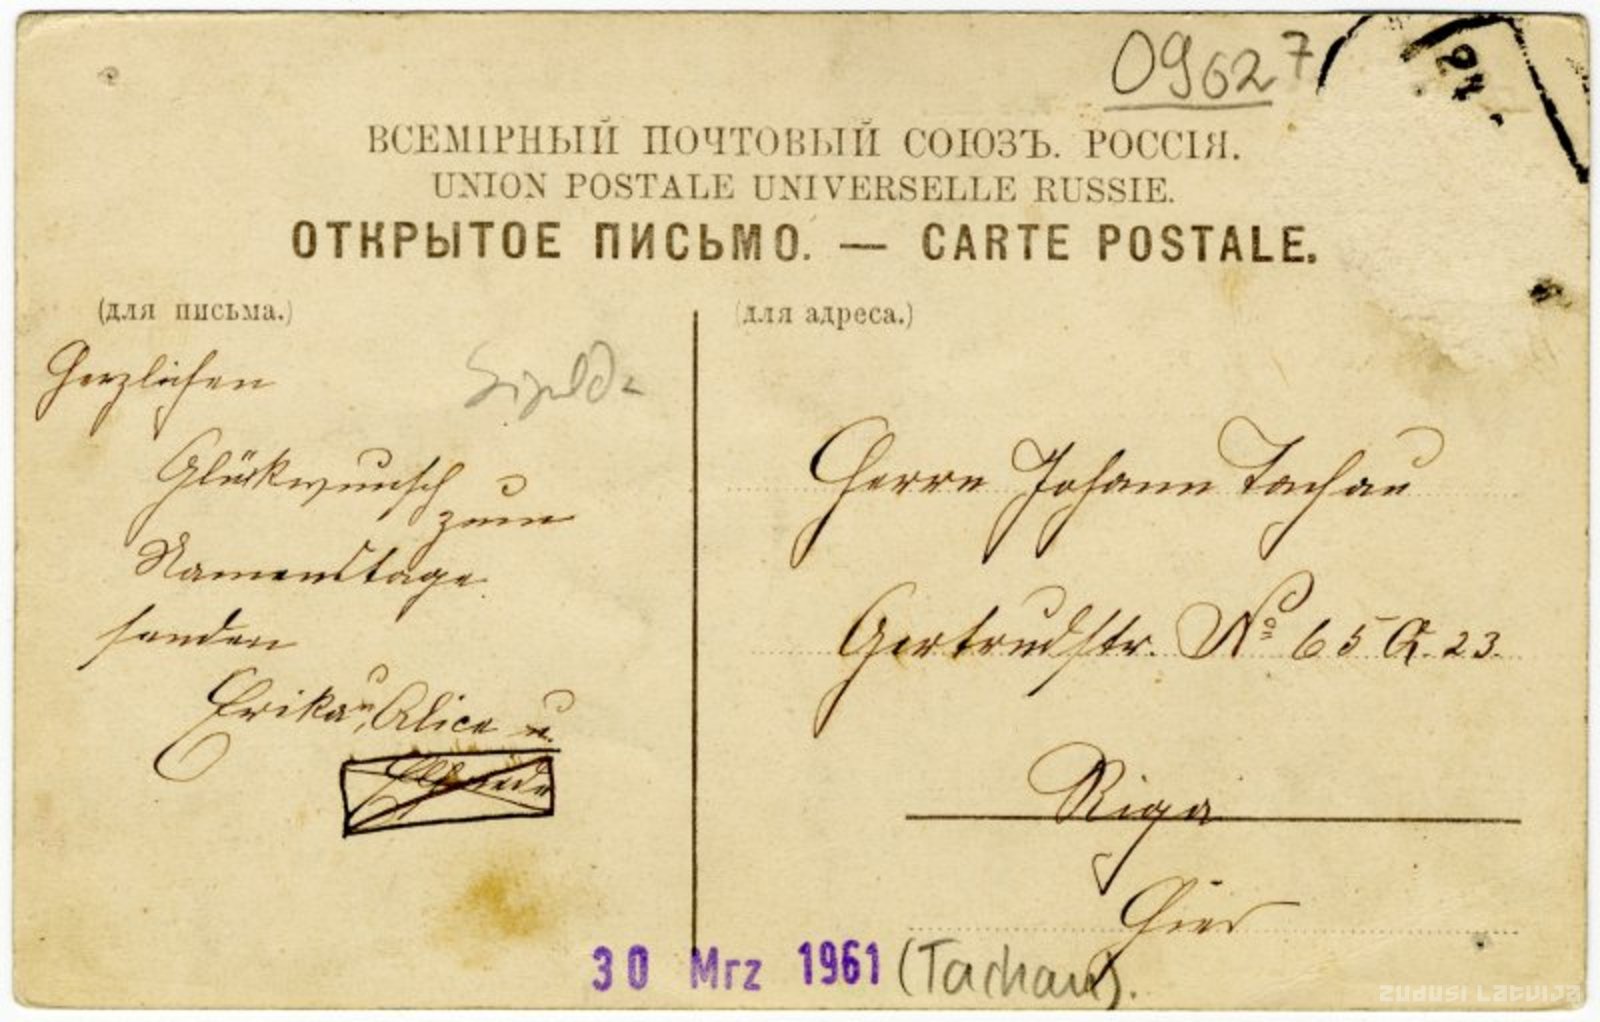 09627
24
ВСЕМІРНЫЙ ПОЧТОВЫЙ СОЮЗЪ. РОССІЯ.
UNION POSTALE UNIVERSELLE RUSSIE.
ОТКРЫТОЕ ПИСЬМО. — CARTE POSTALE.
(для письма.)
Herzlichen
Glückwunsch
zum
Namenstage
senden
Erika u, Alice u.
Sigulda
(для адреса.)
Herrn Johann Tachau
Gertrudstr. No 65 Q. 23.
Riga
Hier
30 Mrz 1961 (Tachau).
zudusi Latvija